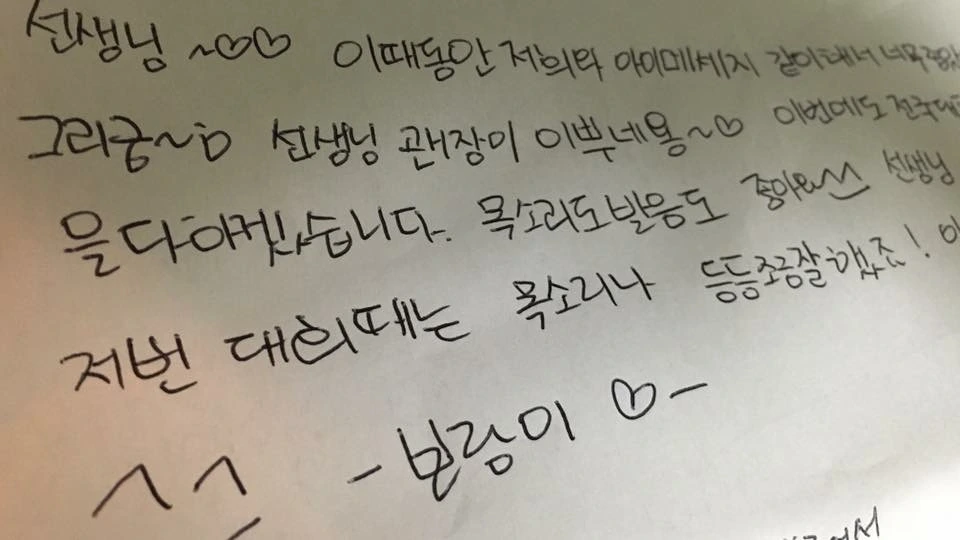 선생님 ~♡♡ 이때동안 저희와 아이메세지 같이해서 너무
그리궁~ㅎ 선생님 굉장이 이쁘네용~♡ 이번에도 전국대
을 다하겠습니다. 목소리도 발음도 좋아요^^ 선생님
저번 대회때는 목소리나 등등 조금 잘했죠! 이
^_^ -보람이♡-
에서